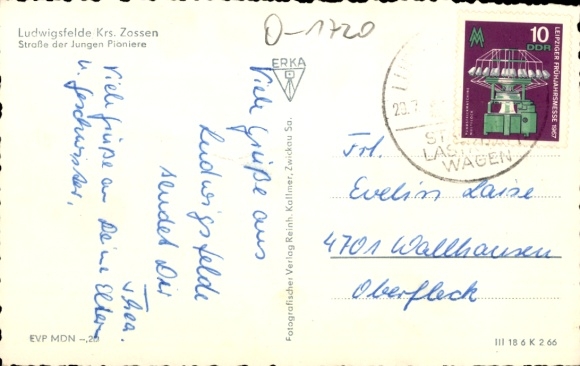 Ludwigsfelde Krs. Zossen
Straße der Jungen Pioniere
O-1720
ERKA
Viele Grüße aus
Ludwigsfelde
sendet Dir
Thea.
Viele Grüße an Deine Eltern
u. Geschwister.
EVP MDN –,20
Fotografischer Verlag Reinh. Kallmer, Zwickau Sa.
10
DDR
LEIPZIGER FRÜHJAHRSMESSE 1967
WAGEN
Frl.
Evelin Laise
4701 Wallhausen
Oberfleck
III 18 6 K 2 66